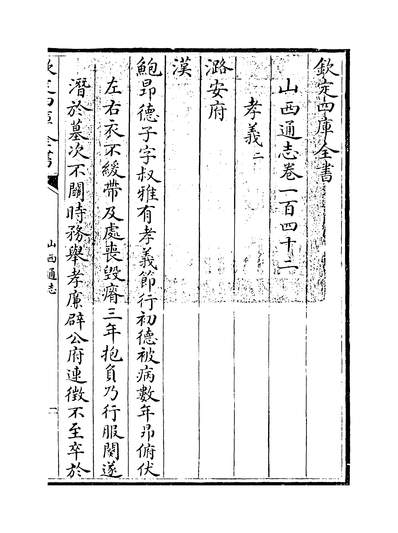 欽定四庫全書
山西通志卷一百四十二
孝義二
潞安府
漢
鮑昻德子字叔雅有孝義節行初德被病數年昻俯伏
左右衣不緩帶及處喪毀瘠三年抱負乃行服闋遂
潛於墓次不關時務舉孝廉辟公府連徵不至卒於
欽定四庫全書
山西通志
一